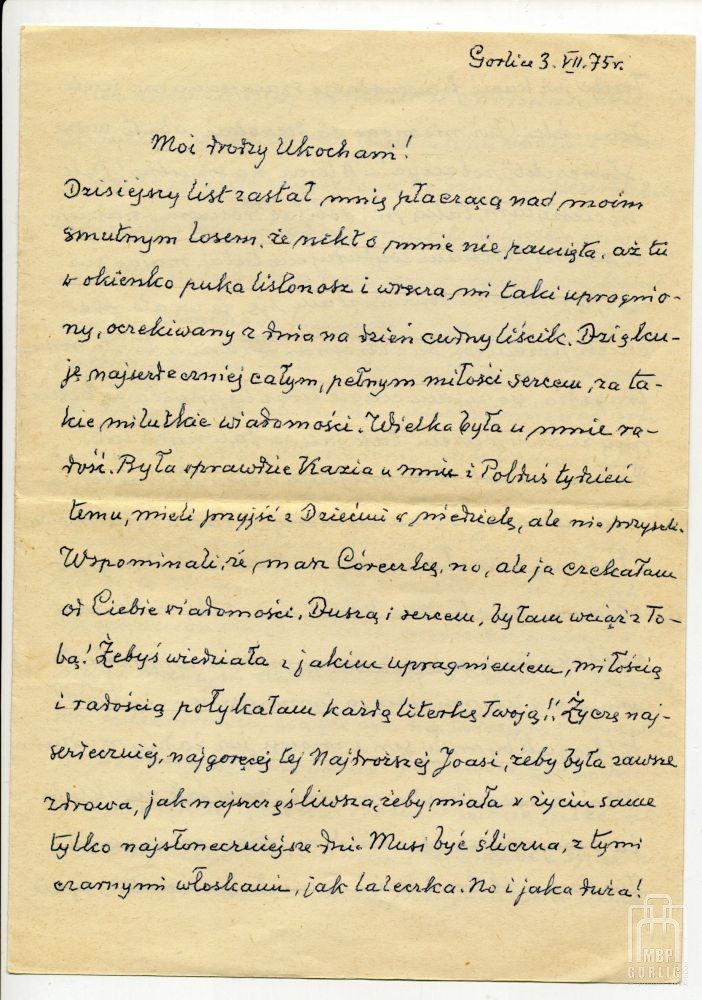 Gorlice 3.VII.75r.
Moi drodzy Ukochani!
Dzisiejszy list zastał mnię płaczącą nad moim
smutnym losem, że nikt o mnie nie pamięta, aż tu
w okienko puka listonosz i wręcza mi taki upragnio-
ny, oczekiwany z dnia na dzień cudny liścik. Dzięku-
ję najserdeczniej całym, pełnym miłości sercem, za ta-
kie milutkie wiadomości. Wielka była u mnie ra-
dość. Była wprawdzie Kazia u mnie i Polduś tydzień
temu, mieli przyjść z Dziećmi w niedzielę, ale nie przyszli.
Wspominali, że masz Córeczkę, no, ale ja czekałam
od Ciebie wiadomości. Duszą i sercem, byłam wciąż z To-
bą! Żebyś wiedziała z jakim upragnieniem, miłością
i radością połykałam każdą literkę Twoją!! Życzę naj-
serdeczniej, najgoręcej tej Najdroższej Joasi, żeby była zawsze
zdrowa, jak najszczęśliwsza, żeby miała w życiu same
tylko najsłoneczniejsze dnie. Musi być śliczna, z tymi
czarnymi włoskami, jak laleczka. No i jaka duża!
MBP
GORLICE